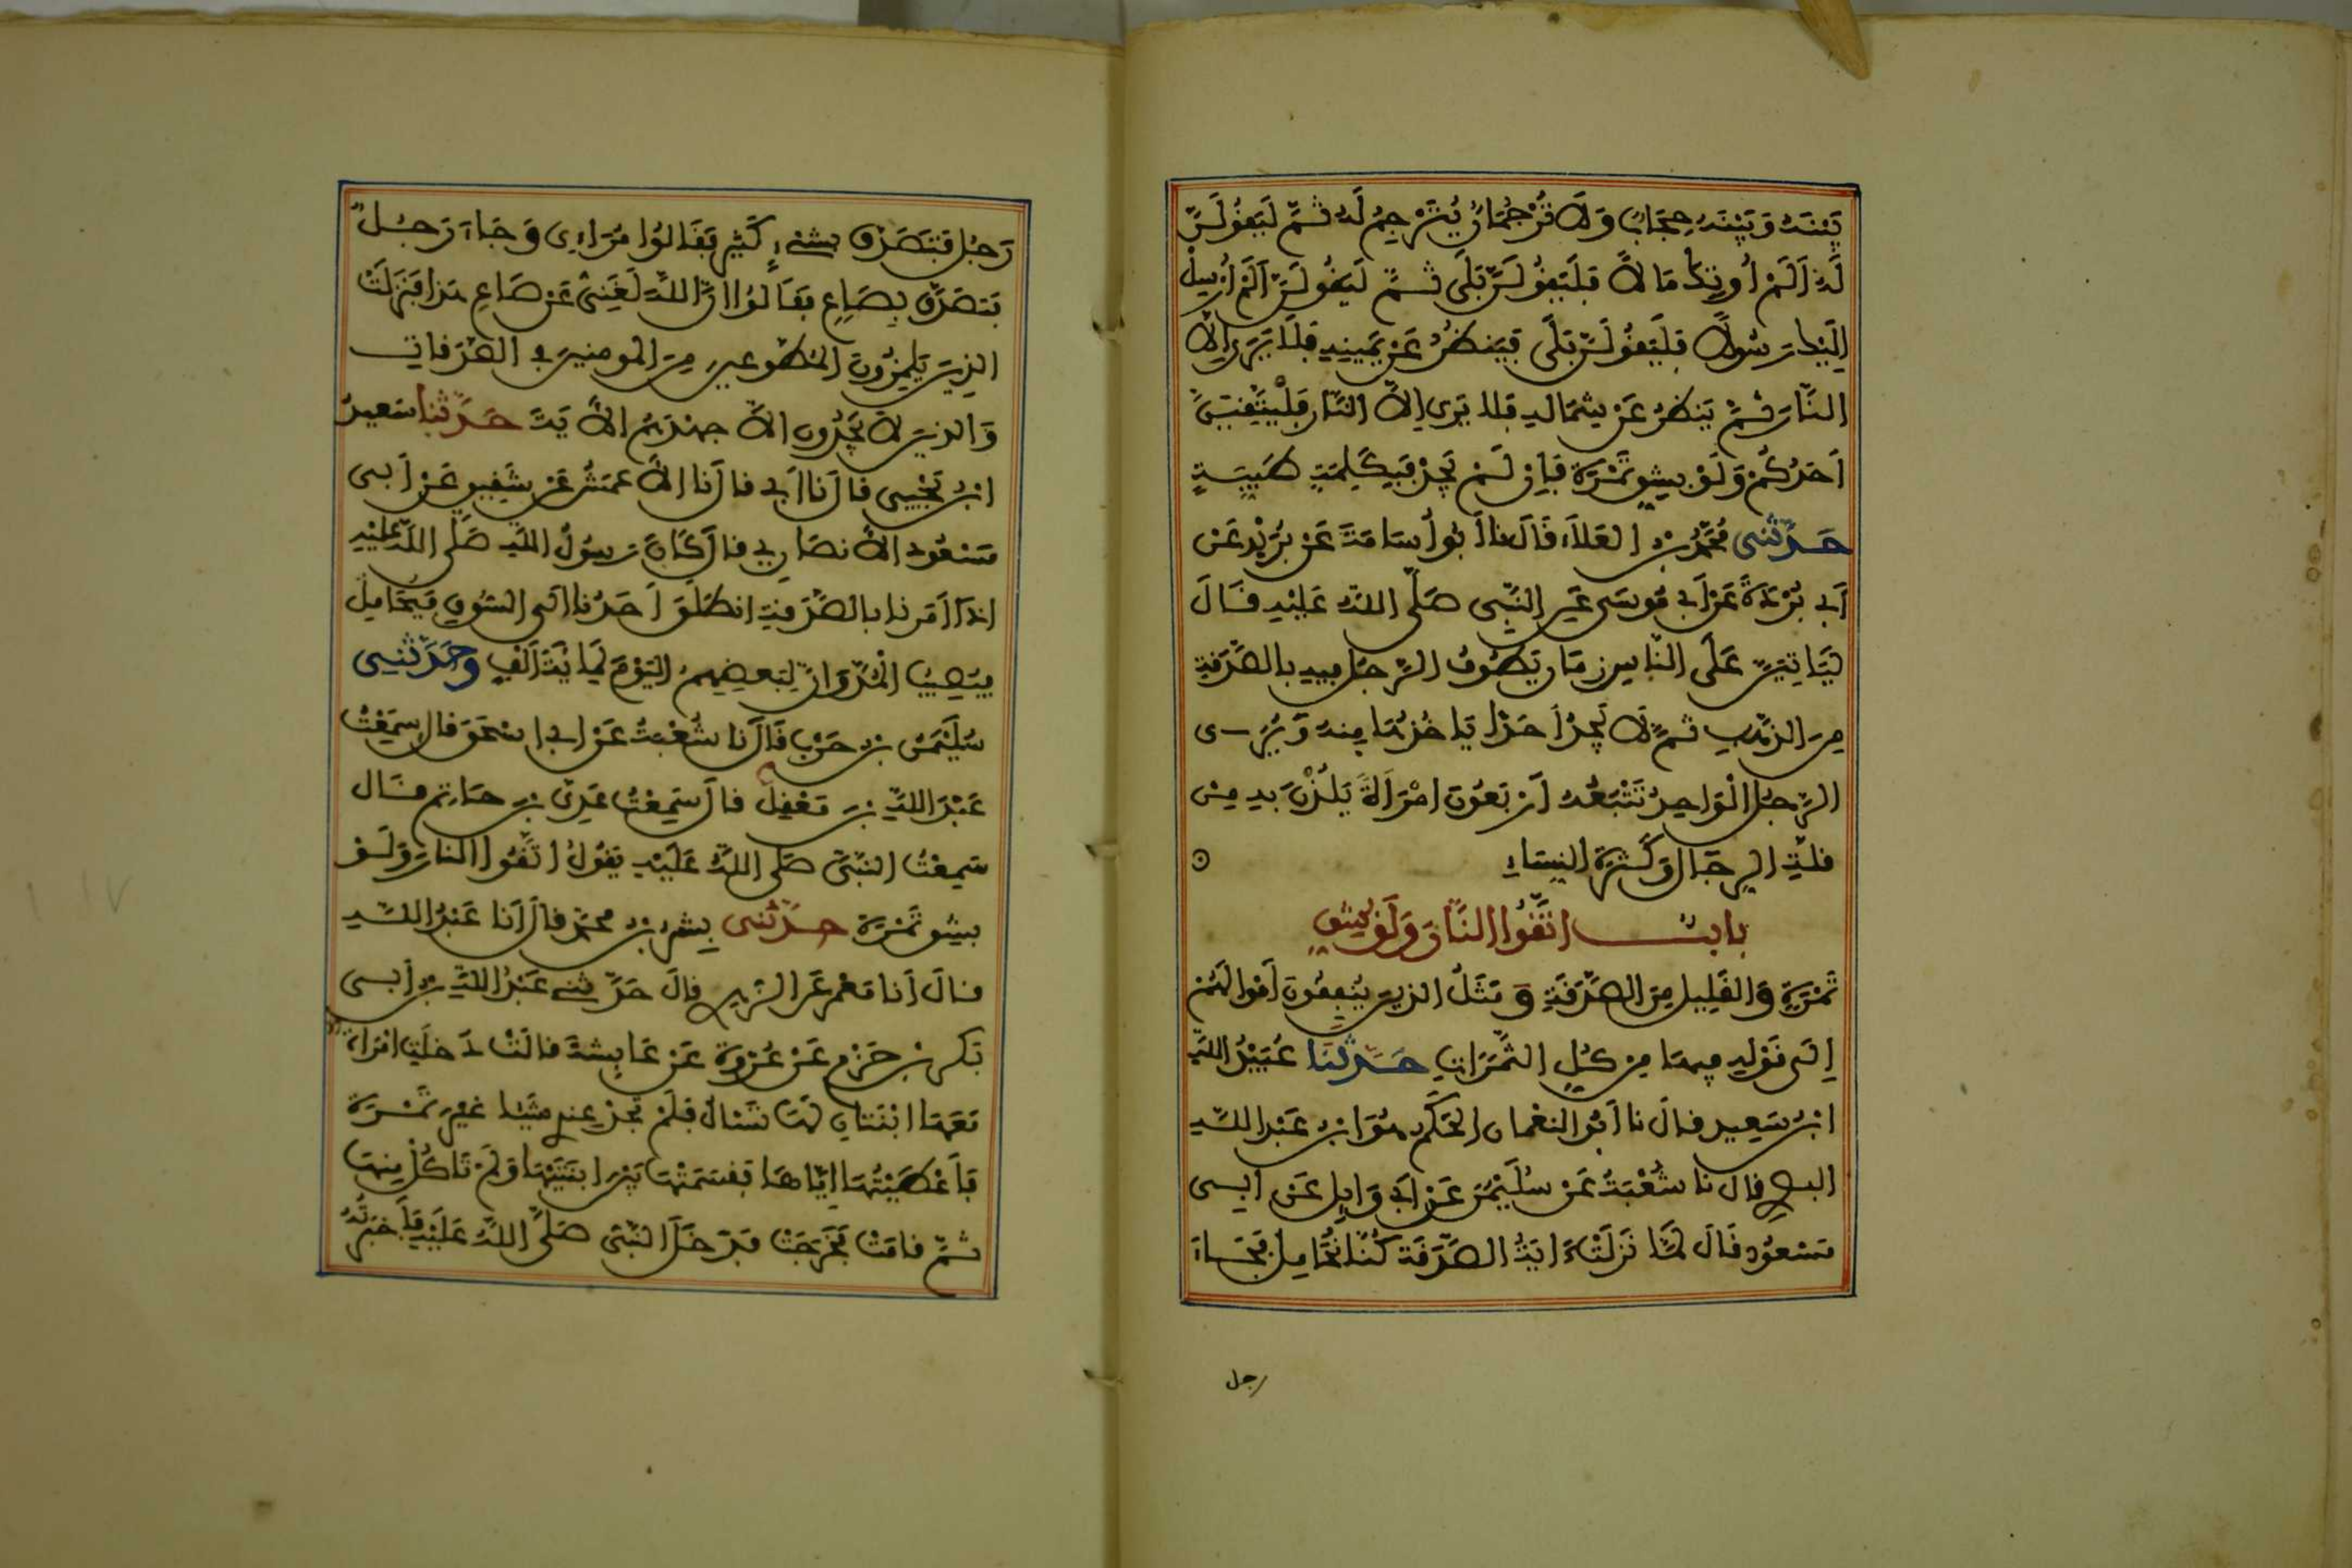 بَيْنَهُ وَبَيْنَهُ حِجَابٌ وَلَا تُرْجُمَانٌ يُتَرْجِمُ لَهُ ثُمَّ لَيَقُولَنَّ
لَهُ اَلَمْ اُوتِكَ مَالاً فَلَيَقُولَنَّ بَلَى ثُمَّ لَيَقُولَنَّ اَلَمْ اُرْسِلْ
اِلَيْكَ رَسُولاً فَلَيَقُولَنَّ بَلَى فَيَنظُرُ عَنْ يَمِينِهِ فَلَا يَرَى اِلاَّ
النَّارَ ثُمَّ يَنظُرُ عَنْ شِمَالِهِ فَلَا يَرَى اِلاَّ النَّارَ فَلْيَتَّقِيَنَّ
اَحَدُكُمْ وَلَوْ بِشِقِّ تَمْرَةٍ فَإِن لَمْ يَجِدْ فَبِكَلِمَةٍ طَيِّبَةٍ
حَدَّثَنِي مُحَمَّدُ بْنُ الْعَلَاءِ قَالَ نا اَبُو اُسَامَةَ عَنْ بُرَيْدٍ عَنْ
اَبِي بُرْدَةَ عَنْ اَبِي مُوسَى عَنِ النَّبِيِّ صَلَّى اللَّهُ عَلَيْهِ قَالَ
لَيَاتِيَنَّ عَلَى النَّاسِ زَمَانٌ يَطُوفُ الرَّجُلُ فِيهِ بِالصَّدَقَةِ
مِنَ الذَّهَبِ ثُمَّ لَا يَجِدُ اَحَدًا يَاخُذُهَا مِنهُ وَيُرَى
الرَّجُلُ الْوَاحِدُ تَتْبَعُهُ اَرْبَعُونَ امْرَأَةً يَلُذْنَ بِهِ مِنْ
قِلَّةِ الرِّجَالِ وَكَثْرَةِ النِّسَاءِ
بابٌ اتَّقُوا النَّارَ وَلَوْ بِشِقِّ
تَمْرَةٍ وَالْقَلِيلِ مِنَ الصَّدَقَةِ وَمَثَلُ الَّذِينَ يُنفِقُونَ أَمْوَالَهُمْ
إِلَى قَوْلِهِ فِيهَا مِن كُلِّ الثَّمَرَاتِ حَدَّثَنَا عُبَيْدُ اللَّهِ
ابْنُ سَعِيدٍ قَالَ نا اَبُو النعْمانِ الْحَكَمُ هُوَ ابْنُ عَبْدِ اللَّهِ
الْبصري قَالَ نا شُعْبَةُ عَنْ سُلَيْمَنَ عَنْ اَبِي وَايِلٍ عَنْ ابِي
مَسْعُودٍ قَالَ لَمَّا نَزَلَتْ ءَايَةُ الصَّدَقَةِ كُنَّا نُحَامِلُ فَجَاءَ
رجل
رَجُلٌ فَتَصَدَّقَ بِشَيْءٍ كَثِيرٍ فَقَالُوا مُرَاءِى وَجَاءَ رَجُلٌ
فَتَصَدَّقَ بِصَاعٍ فَقَالُوا اِنَّ اللَّهَ لَغَنِيٌّ عَنْ صَاعِ هَذَا فَنَزَلَتْ
الذِينَ يَلْمِزُونَ الْمُطَّوِّعِينَ مِنَ الْمُومِنِينَ فِي الصَّدَقَاتِ
وَالذِينَ لَا يَجِدُونَ اِلاَّ جهْدَهُمْ الاَيَةَ حَدَّثَنَا سَعِيدُ
ابْنُ يَحْيَى قَالَ نَا اَبِي قَالَ نَا الاَعْمَشُ عَنْ شَقِيقٍ عَنْ اَبِي
مَسْعُودٍ الاَنصَارِيِّ قَالَ كَانَ رَسُولُ اللَّهِ صَلَّى اللَّهُ عَلَيْهِ
اِذَا اَمَرَنَا بِالصَّدَقَةِ انطَلَقَ اَحَدُنَا اِلَى السُّوقِ فَيُحَامِلُ
فَيُصِيبُ الْمُدَّ وَاِنَّ لِبَعضِهِمُ الْيَوْمَ لَمِايَةَ اَلْفٍ وَحَدَّثَنِي
سُلَيْمَنُ بْنُ حَرْبٍ قَالَ نَا شُعْبَةُ عَنْ اَبِي اِسْحَقَ قَالَ سَمِعْتُ
عَبْدَ اللَّهِ بْنَ مَعْقِلٍ قَالَ سَمِعْتُ عَدِيَّ بْنَ حَاتِمٍ قَالَ
سَمِعْتُ النَّبِيَّ صَلَّى اللَّهُ عَلَيْهِ يَقُولُ اتَّقُوا النَّارَ وَلَوْ
بِشِقِّ تَمْرَةٍ حَدَّثَنِي بِشْرُ بْنُ مُحَمَّدٍ قَالَ اَنَا عَبْدُ اللَّهِ
قَالَ اَنَا مَعْمَرٌ عَنِ الزهري قَالَ حَدَّثَنِي عَبْدُ اللَّهِ بْنُ أَبِي
بَكْرِ بْنِ حَزْمٍ عَنْ عُرْوَةَ عَنْ عَايِشَةَ قَالَتْ دَخَلَتِ امْرَأَةٌ
مَعَهَا ابْنَتَانِ لَهَا تَسْأَلُ فَلَمْ تَجِدْ عِندِي شَيْئًا غَيْرَ تَمْرَةٍ
فَأَعْطَيْتُهَا اِيَّاهَا فَقَسَمَتْهَا بَيْنَ ابْنَتَيْهَا وَلَمْ تَاكُلْ مِنهَا
ثُمَّ قَامَتْ فَخَرَجَتْ فَدَخَلَ النَّبِيُّ صَلَّى اللَّهُ عَلَيْهِ فَأَخْبَرْتُهُ